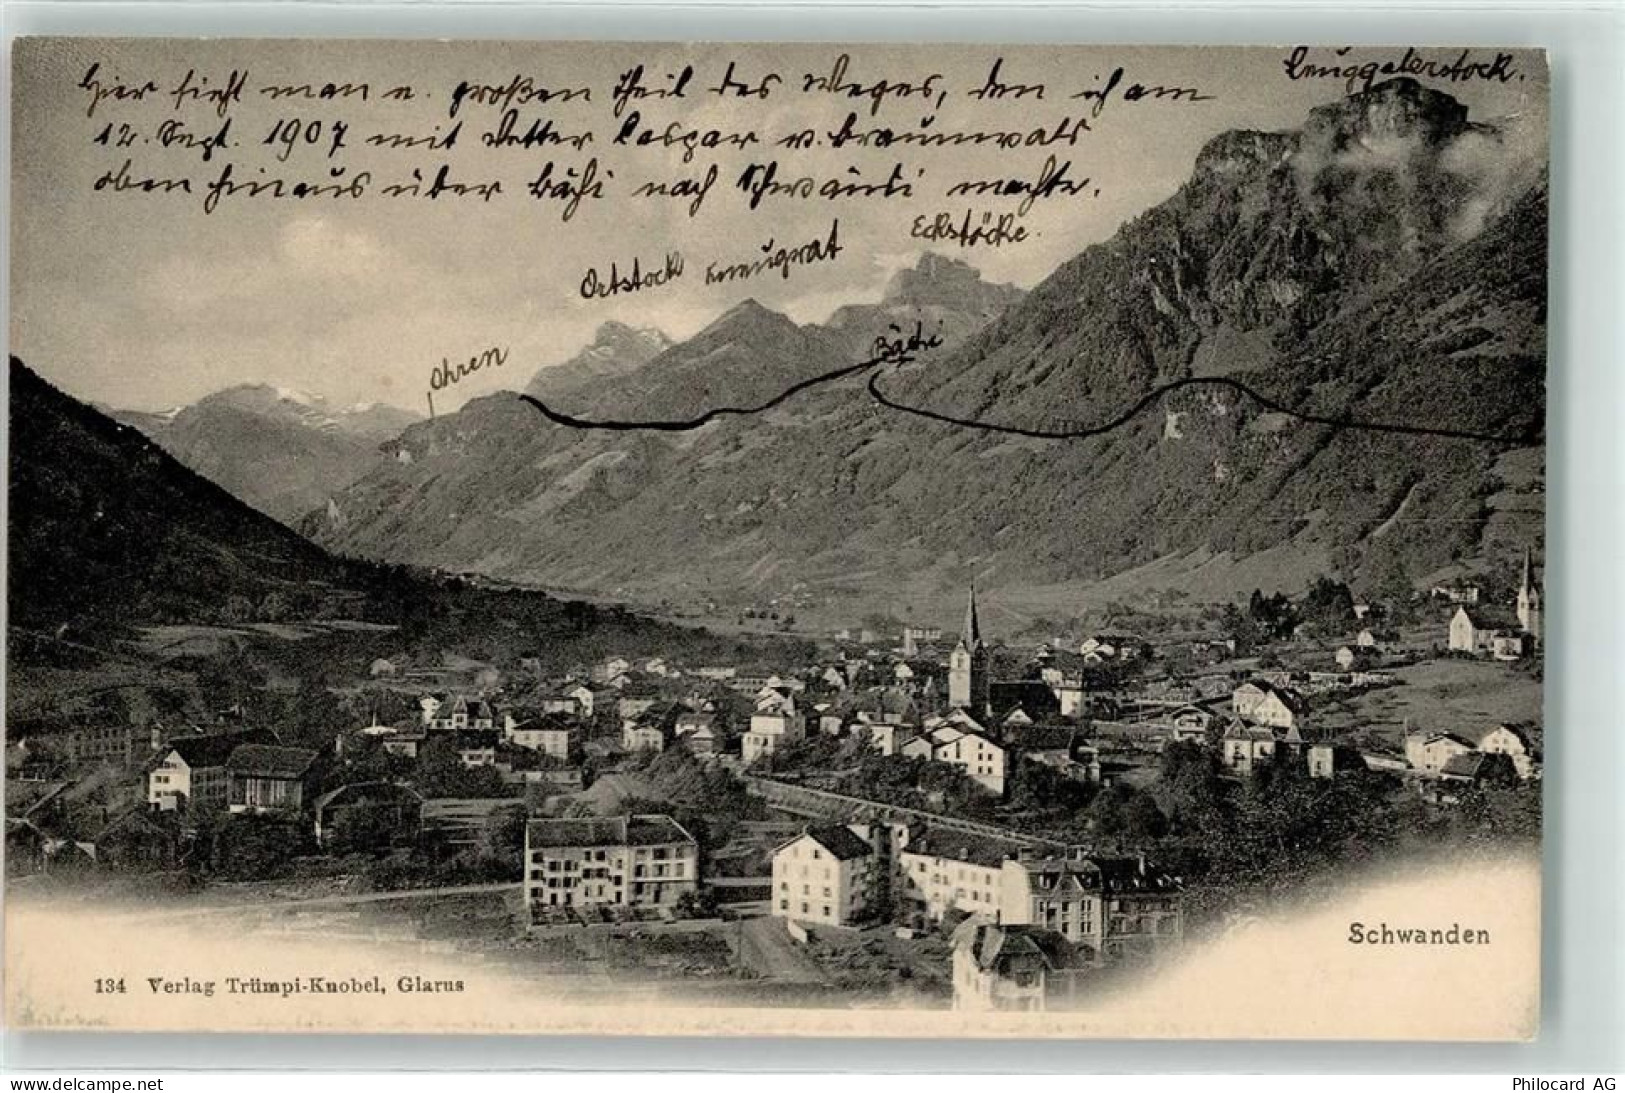 Hier sieht man e. großen Theil des Weges, den ich am
12. Sept. 1907 mit Vetter Caspar v. Braunwald
oben hinaus über Bächi nach Schwändi machte.
Leuggelerstock.
Eckstöcke.
Ortstock Kneugrat
Bächi
Ohren
Schwanden
134 Verlag Trümpi-Knobel, Glarus
www.delcampe.net
Philocard AG